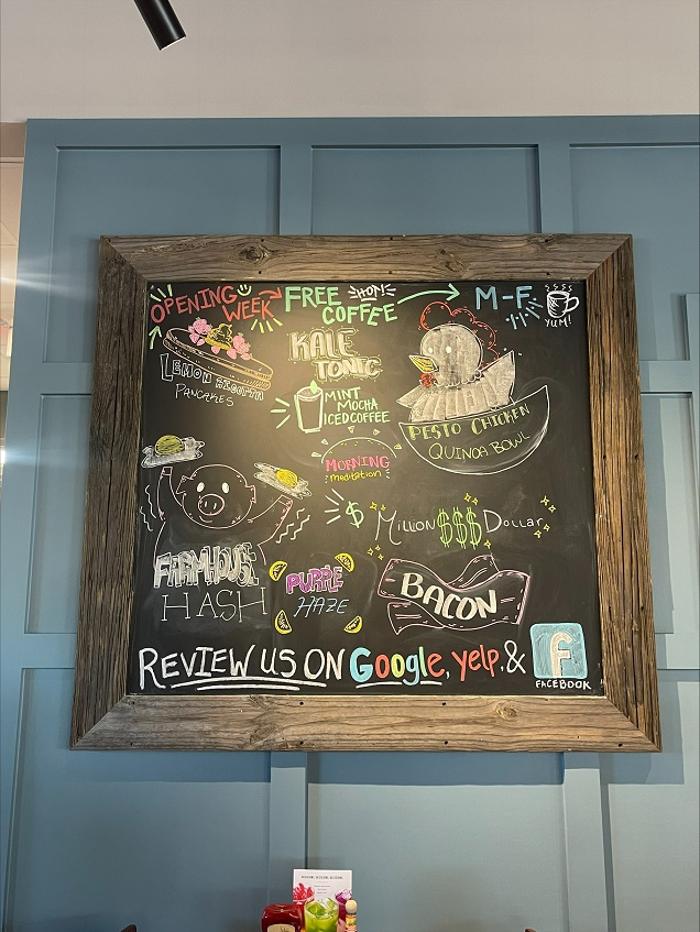 OPENING
WEEK
FREE
COFFEE
HOT
M-F
YUM!
LEMON RICOTTA
PANCAKES
KALE
TONIC
MINT
MOCHA
ICED COFFEE
PESTO CHICKEN
QUINOA BOWL
MORNING
meditation
$ MILLION $$$ DOLLAR
BACON
FARMHOUSE
HASH
PURPLE
HAZE
REVIEW US ON Google, yelp, & f
FACEBOOK